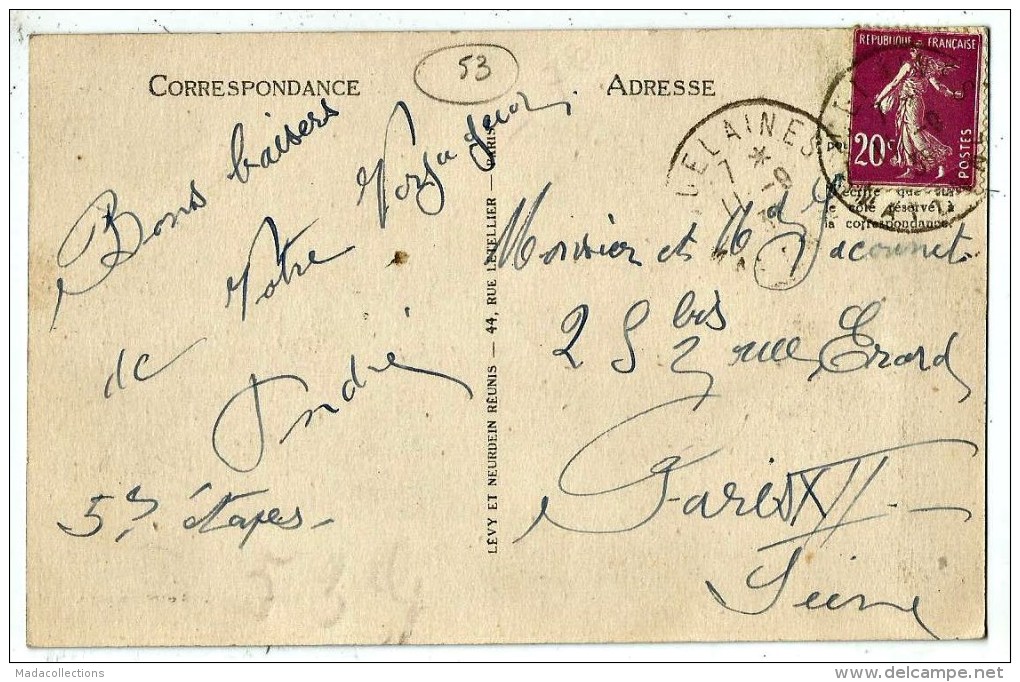 53
CORRESPONDANCE
Bons baisers
de Votre
André
5 étapes
LÉVY ET NEURDEIN RÉUNIS — 44, RUE LETELLIER — PARIS
ADRESSE
REPUBLIQUE FRANÇAISE
20c
POSTES
QUELAINES
7 *
côté réservé à
la correspondance.
Monsieur et Md Jacounet
25 bis rue Erard
Paris XII
Seine
Madacollections
www.delcampe.net